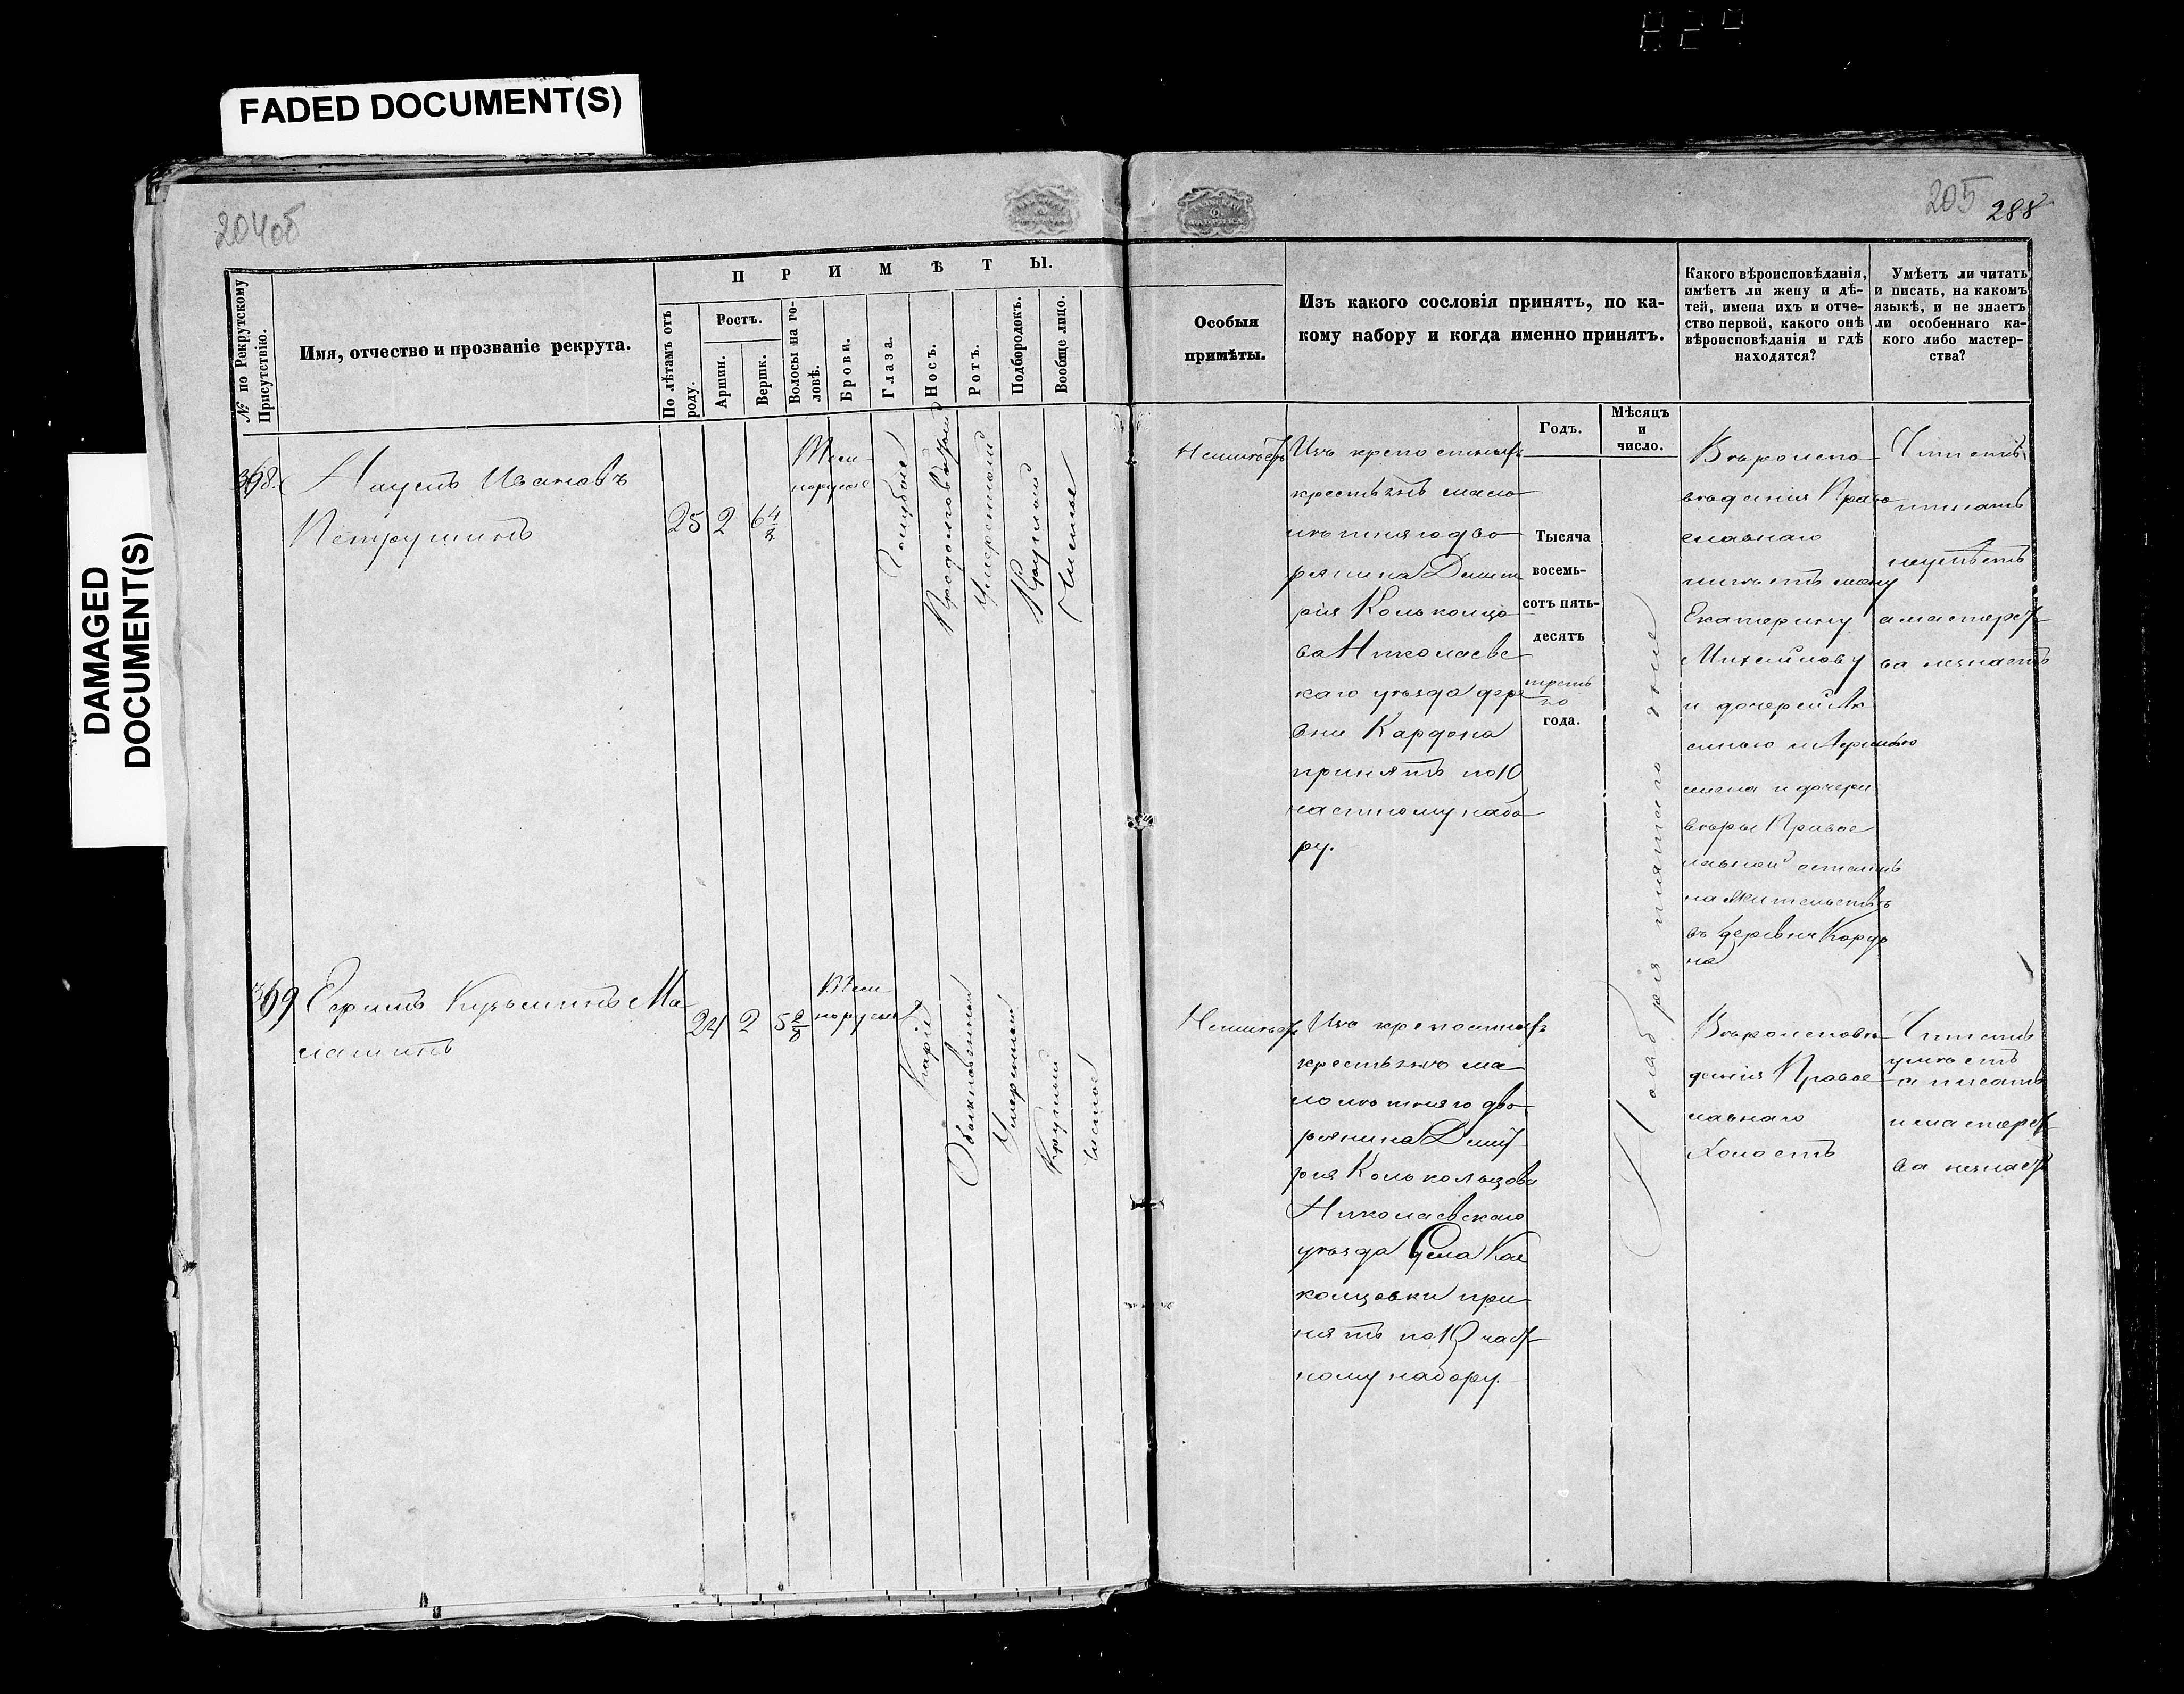 FADED DOCUMENT(S)
DAMAGED
DOCUMENT(S)
204об
205
288
№ по Рекрутскому
Присутствію.
Имя, отчество и прозваніе рекрута.
П Р И М Ѣ Т Ы.
По лѣтамъ отъ
роду.
Ростъ.
Аршин.
Вершк.
Волосы на го-
ловѣ.
Брови.
Глаза.
Носъ.
Ротъ.
Подбородокъ.
Вообще лицо.
Особыя
примѣты.
Изъ какого сословія принятъ, по ка-
кому набору и когда именно принятъ.
Годъ.
Мѣсяцъ
и
число.
Какого вѣроисповѣданія,
имѣетъ ли жену и дѣ-
тей, имена ихъ и отче-
ство первой, какого онѣ
вѣроисповѣданія и гдѣ
находятся?
Умѣетъ ли читать
и писать, на какомъ
языкѣ, и не знаетъ
ли особеннаго ка-
кого либо мастер-
ства?
398
Ивановъ
Петрушинъ
25
2
6 4/8
Темно
русые
Голубые
Продолговатый
Умеренный
Круглый
Чистое
Неимѣетъ
Изъ крепостныхъ
крестьянъ мало
лѣтняго дво
рянина Дмит
рія Кольколцо
ва Николаевс
каго уѣзда дере
вни Кардона
принятъ по 10
частному набо
ру.
Тысяча
восемь-
сотъ пять-
десятъ
треть
го
года.
Ноября пятаго дне
Вѣроиспо
вѣденія Право
славнаго
имѣетъ жену
Екатерину
Михайлову
и дочерей Ак
синью и
жена и дочери
вѣры Правос
лавной остались
на жительствѣ
въ деревни Кардо
на
Читать
писать
неумѣетъ
а мастерст
ва незнаетъ
399
Ефимъ Кузьминъ Ма
лашинъ
24
2
5 2/8
Темно
русые
Каріе
Обыкновенный
Умеренный
Круглый
Чистое
Неимѣетъ
Изъ крепостныхъ
крестьянъ ма
лолѣтняго дво
рянина Дмит
рія Кольколцова
Николаевскаго
уѣзда Села Кол
колцовки при
нятъ по 10 част
ному набору.
Вѣроисповѣ
денія Правос
лавнаго
Холостъ
Читать
умѣетъ
а писать
и мастерст
ва незнаетъ